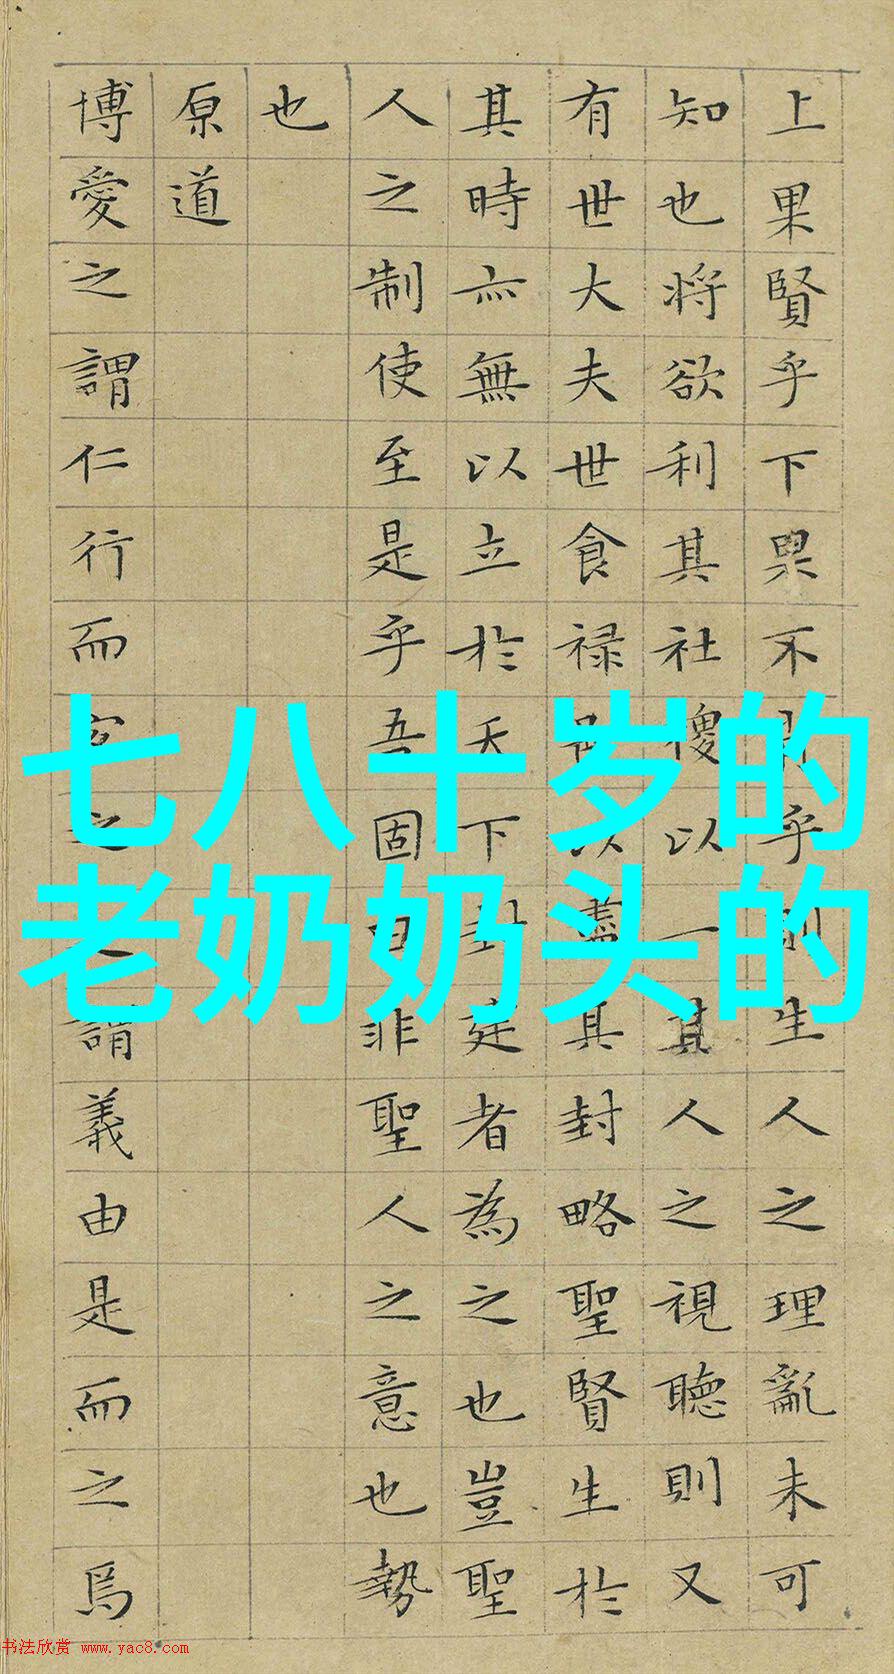 上果賢乎下果不肖乎則生人之理亂未可
知也將欲利其社稷以一其人之視聽則又
有世大夫世食禄邑以盡其封略聖賢生於
其時亦無以立於天下封建者為之也豈聖
人之制使至是乎吾固曰非聖人之意也勢
也
原道
博愛之謂仁行而宜之之謂義由是而之焉
七八十岁的
老奶奶头的
书法欣赏 www.yac8.com